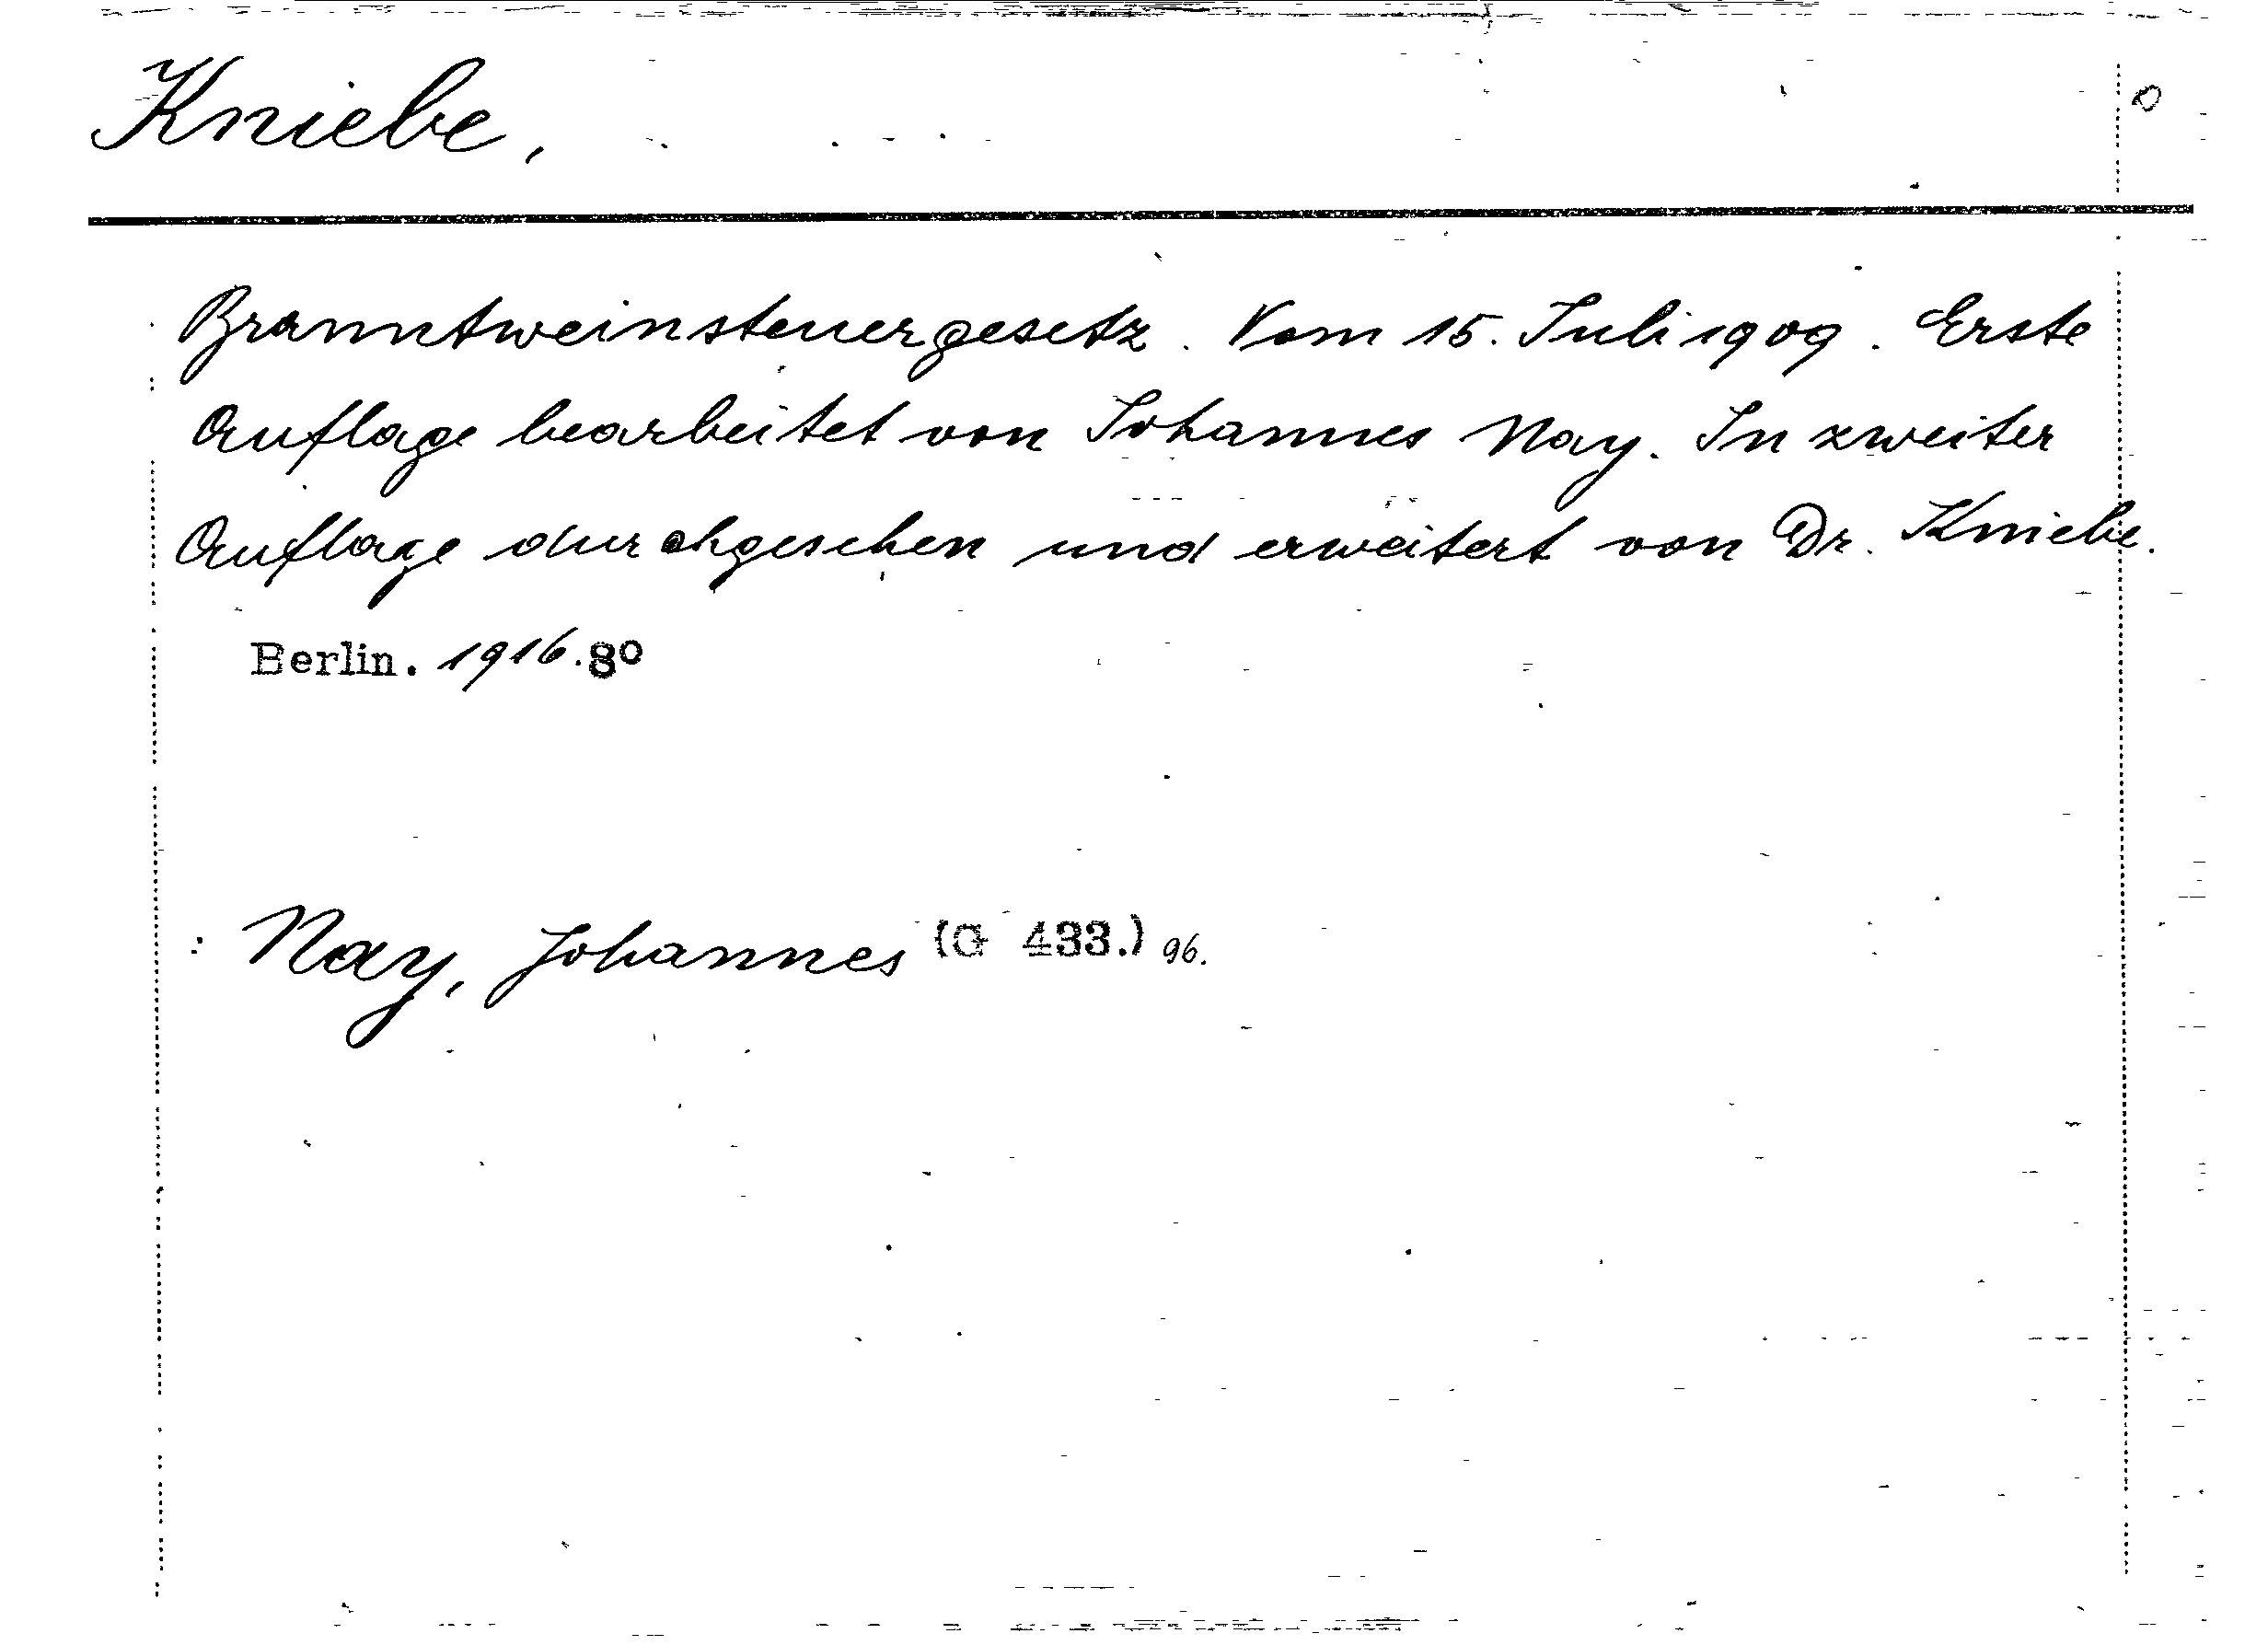 Kniebe,
Branntweinsteuergesetz. Vom 15. Juli 1909. Erste
Auflage bearbeitet von Johannes Nay. In zweiter
Auflage durchgesehen und erweitert von Dr. Kniebe.
Berlin. 1916. 8°
Nay, Johannes (G 433.) 96.